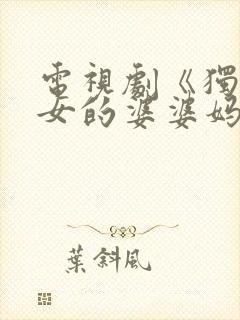 電視劇《獨
女的婆婆媽
葉斜風